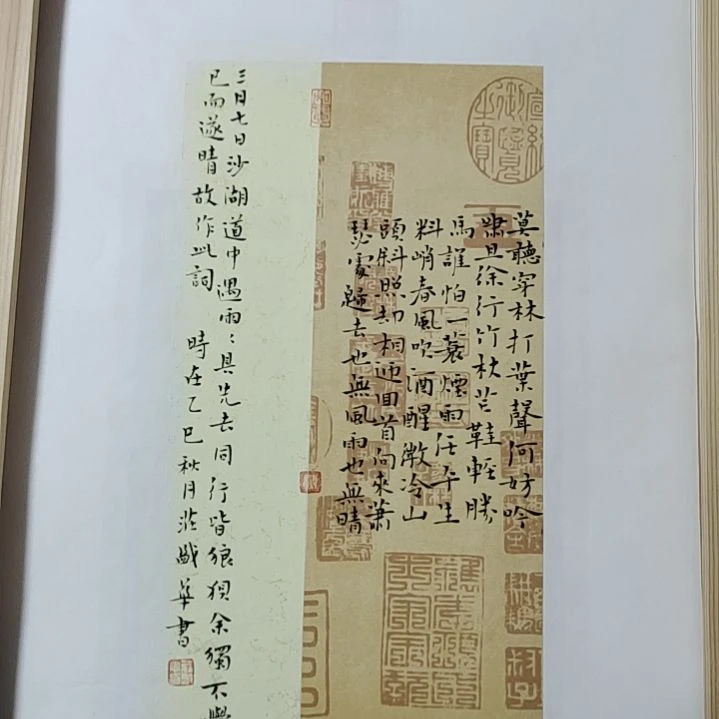 莫聽穿林打葉聲何妨吟
嘯且徐行竹杖芒鞋輕勝
馬誰怕一蓑煙雨任平生
料峭春風吹酒醒微冷山
頭斜照却相迎回首向來蕭
瑟處歸去也無風雨也無晴
三月七日沙湖道中遇雨〻具先去同行皆狼狽余獨不覺
已而遂晴故作此詞
時在乙巳秋月莊盛華書
宣統御覽之寶